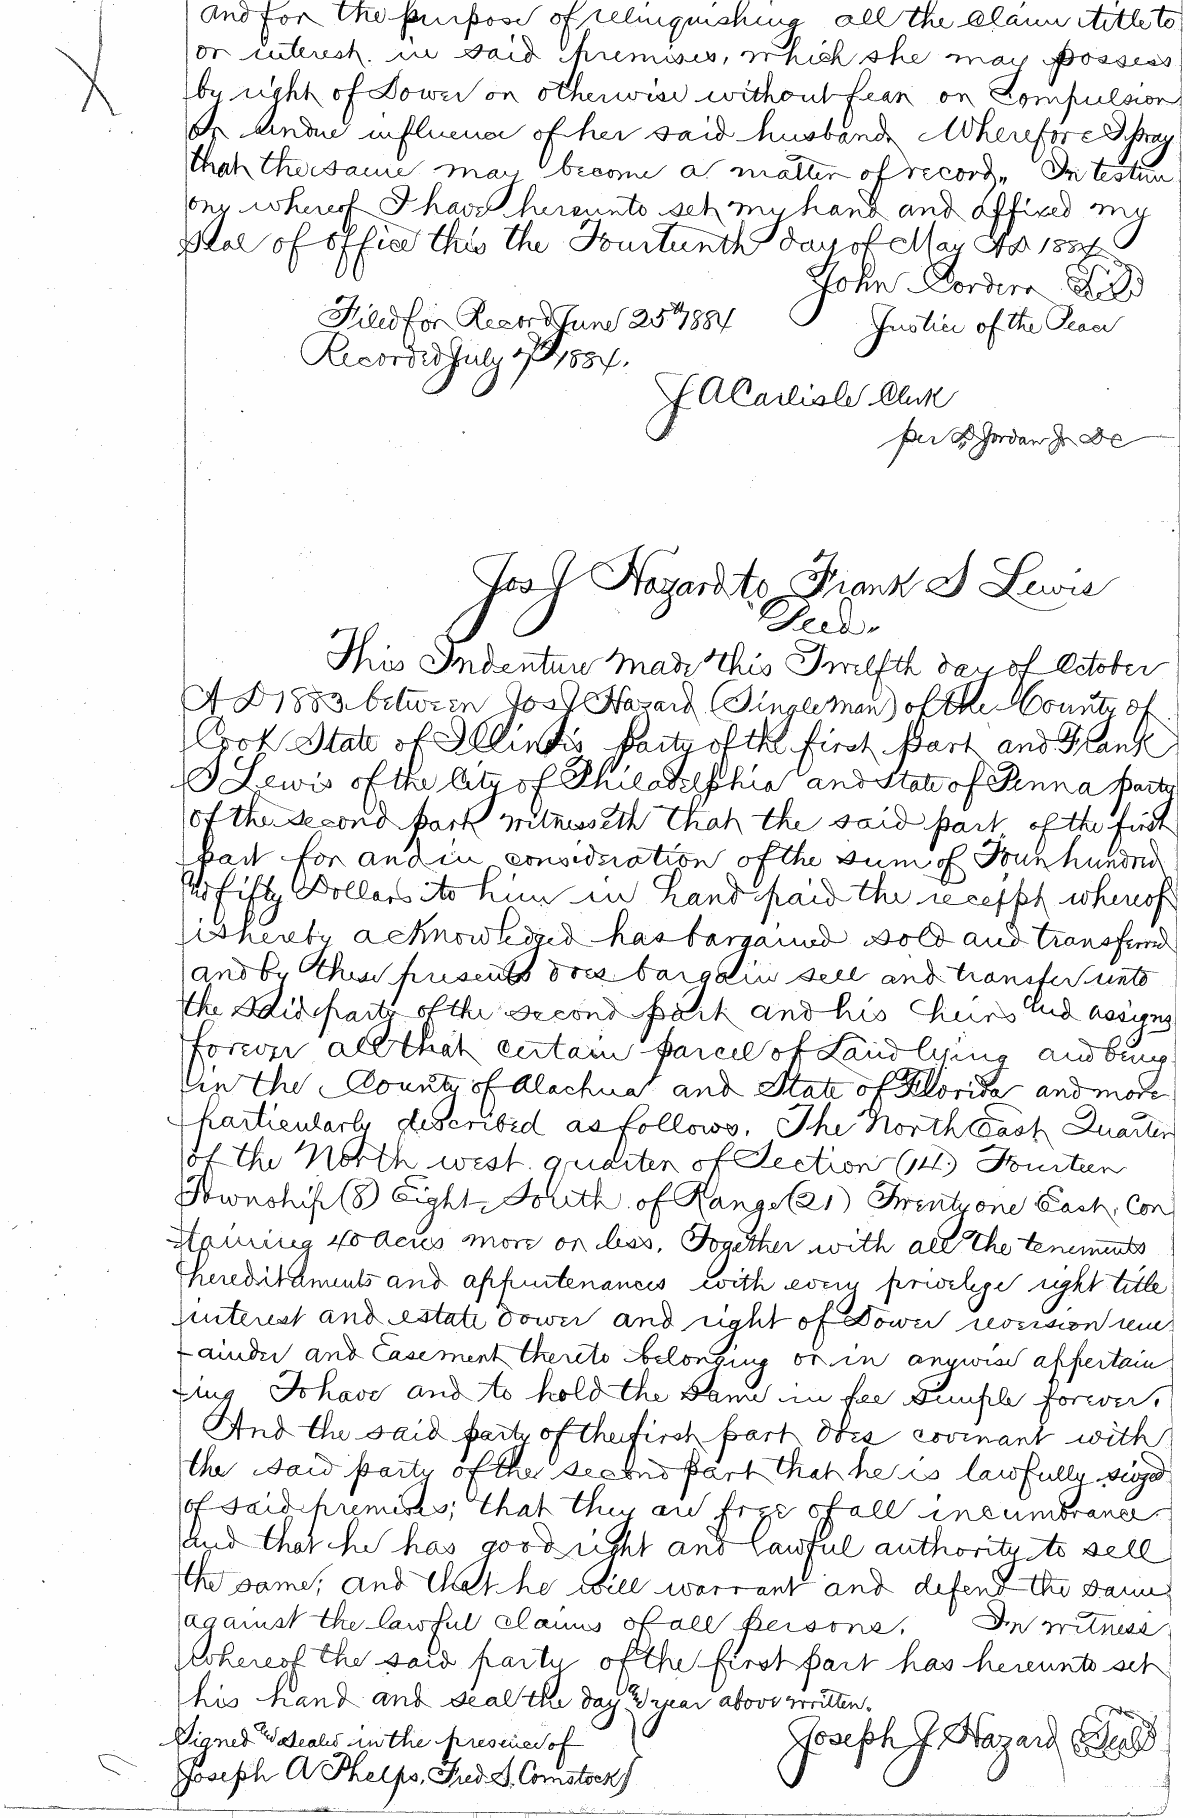 and for the purpose of relinquishing all the claim title to
or interest in said premises, which she may possess
by right of Dower or otherwise without fear or Compulsion
or undue influence of her said husband. Wherefore I pray
that the same may become a matter of record. In testim
ony whereof I have hereunto set my hand and affixed my
seal of office this the Fourteenth day of May AD 1884
John
Filed for Record June 25th 1884 Justice of the Peace
Recorded July 7th 1884.
J A Carlisle Clerk
per Jordan Jr DC
Jos J Hazard to Frank S Lewis
Deed.
This Indenture made this Twelfth day of October
A D 1883 between Jos J Hazard (Single Man) of the County of
Cook State of Illinois party of the first part and Frank
S Lewis of the City of Philadelphia and State of Penna party
of the second part witnesseth that the said part of the first
part for and in consideration of the sum of Four hundred
and fifty Dollars to him in hand paid the receipt whereof
is hereby acknowledged has bargained sold and transferred
and by these presents does bargain sell and transfer unto
the said party of the second part and his heirs and assigns
forever all that certain parcel of Land lying and being
in the County of Alachua and State of Florida and more
particularly described as follows. The North East Quarter
of the North west quarter of Section (14) Fourteen
Township (8) Eight South of Range (21) Twenty one East, Con
taining 40 acres more or less. Together with all the tenements
hereditaments and appurtenances with every privilege right title
interest and estate dower and right of Dower reversion rem
-ainder and Easement thereto belonging or in anywise appertain
-ing To have and to hold the same in fee simple forever.
And the said party of the first part does covenant with
the said party of the second part that he is lawfully siezed
of said premises; that they are free of all incumbrance
and that he has good right and lawful authority to sell
the same; and that he will warrant and defend the same
against the lawful claims of all persons. In witness
whereof the said party of the first part has hereunto set
his hand and seal the day and year above written.
Signed and sealed in the presence of Joseph J. Hazard (Seal)
Joseph A Phelps, Fred S. Comstock